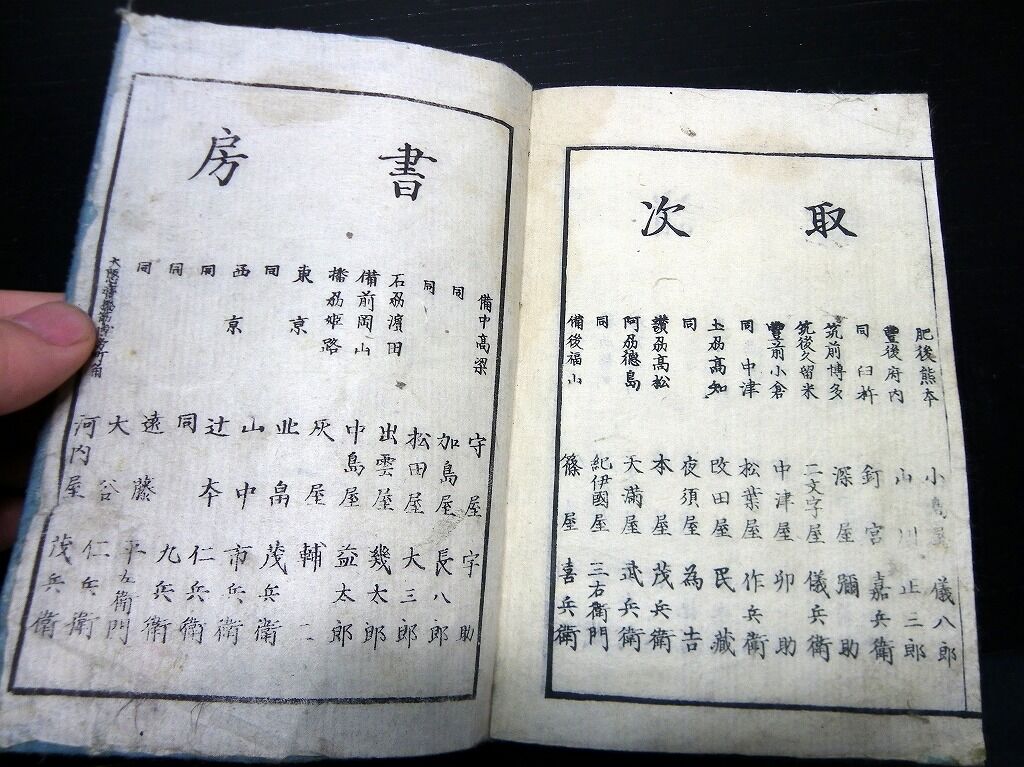 取次
肥後熊本 小島屋儀八郎
豐後府内 山川正三郎
同臼杵 釘宮嘉兵衛
筑前博多 深屋彌助
筑後久留米 二文字屋儀兵衛
豐前小倉 中津屋卯助
同中津 松葉屋作兵衛
土刕高知 改田屋民藏
同 夜須屋為吉
讚刕高松 本屋茂兵衛
阿刕德島 天滿屋武兵衛
同 紀伊國屋三右衛門
備後福山 篠屋喜兵衛
書房
備中高梁 守屋宇助
同 加島屋長八郎
同 松田屋大三郎
石刕濵田 出雲屋幾太郎
備前岡山 中島屋益太郎
播刕姫路 灰屋輔二
東京 北畠茂兵衛
同 山中市兵衛
西京 辻本仁兵衛
同 同九兵衛
同 遠藤平左衛門
同 大谷仁兵衛
河内屋茂兵衛